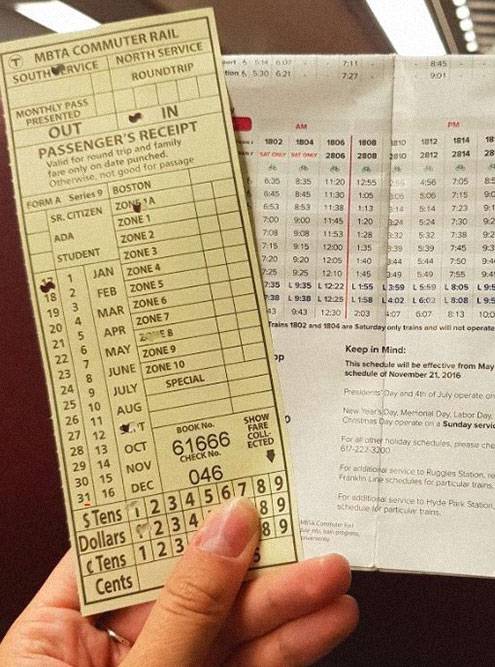 MBTA COMMUTER RAIL
SOUTH SERVICE NORTH SERVICE
ROUNDTRIP
MONTHLY PASS
PRESENTED
OUT IN
PASSENGER'S RECEIPT
Valid for round trip and family
fare only on date punched.
Otherwise, not good for passage
FORM A Series 9 BOSTON
SR. CITIZEN ZONE 1A
ZONE 1
ADA ZONE 2
STUDENT ZONE 3
1 JAN ZONE 4
18 2 FEB ZONE 5
19 3 MAR ZONE 6
20 4 APR ZONE 7
21 5
22 6 MAY ZONE 9
23 7 JUNE ZONE 10
24 8 JULY SPECIAL
25 9 AUG
26 10
27 11 OCT BOOK No.
28 12 NOV 61666
29 13 DEC CHECK No.
30 14 046
31 15
16
SHOW
FARE
COLL-
ECTED
$ Tens 1 2 3 4 5 6 7 8 9
Dollars 2 3 4 8 9
¢ Tens 1 2 3 8 9
Cents
7:11 8:45
5:30 6:21 7:27 9:01
AM PM
1802 1804 1806 1808 1810 1812 1814
SAT ONLY SAT ONLY 2806 2808 2810 2812 2814
6:35 8:35 11:20 12:55 4:56 7:05
6:45 8:45 11:30 1:05 5:06 7:15
6:53 8:53 11:38 1:13 5:14 7:23
7:00 9:00 11:45 1:20 3:24 5:24 7:30
7:08 9:08 11:53 1:28 3:32 5:32 7:38
7:15 9:15 12:00 1:35 3:39 5:39 7:45
7:20 9:20 12:05 1:40 3:44 5:44 7:50
7:25 9:25 12:10 1:45 3:49 5:49 7:55
7:35 L 9:35 L 12:22 L 1:55 L 3:59 L 5:59 L 8:05
7:38 L 9:38 L 12:25 L 1:58 L 4:02 L 6:02 L 8:08
9:43 12:30 2:03 4:07 6:07 8:13
Trains 1802 and 1804 are Saturday only trains and will not operate
Keep in Mind:
This schedule will be effective from May
schedule of November 21, 2016
Presidents' Day and 4th of July operate on
New Year's Day, Memorial Day, Labor Day,
Christmas Day operate on a Sunday
For all other holiday schedules, please
617-222-3200
For additional service to Ruggles Station,
Franklin Line schedules for particular trains.
For additional service to Hyde Park Station,
schedule for particular trains.